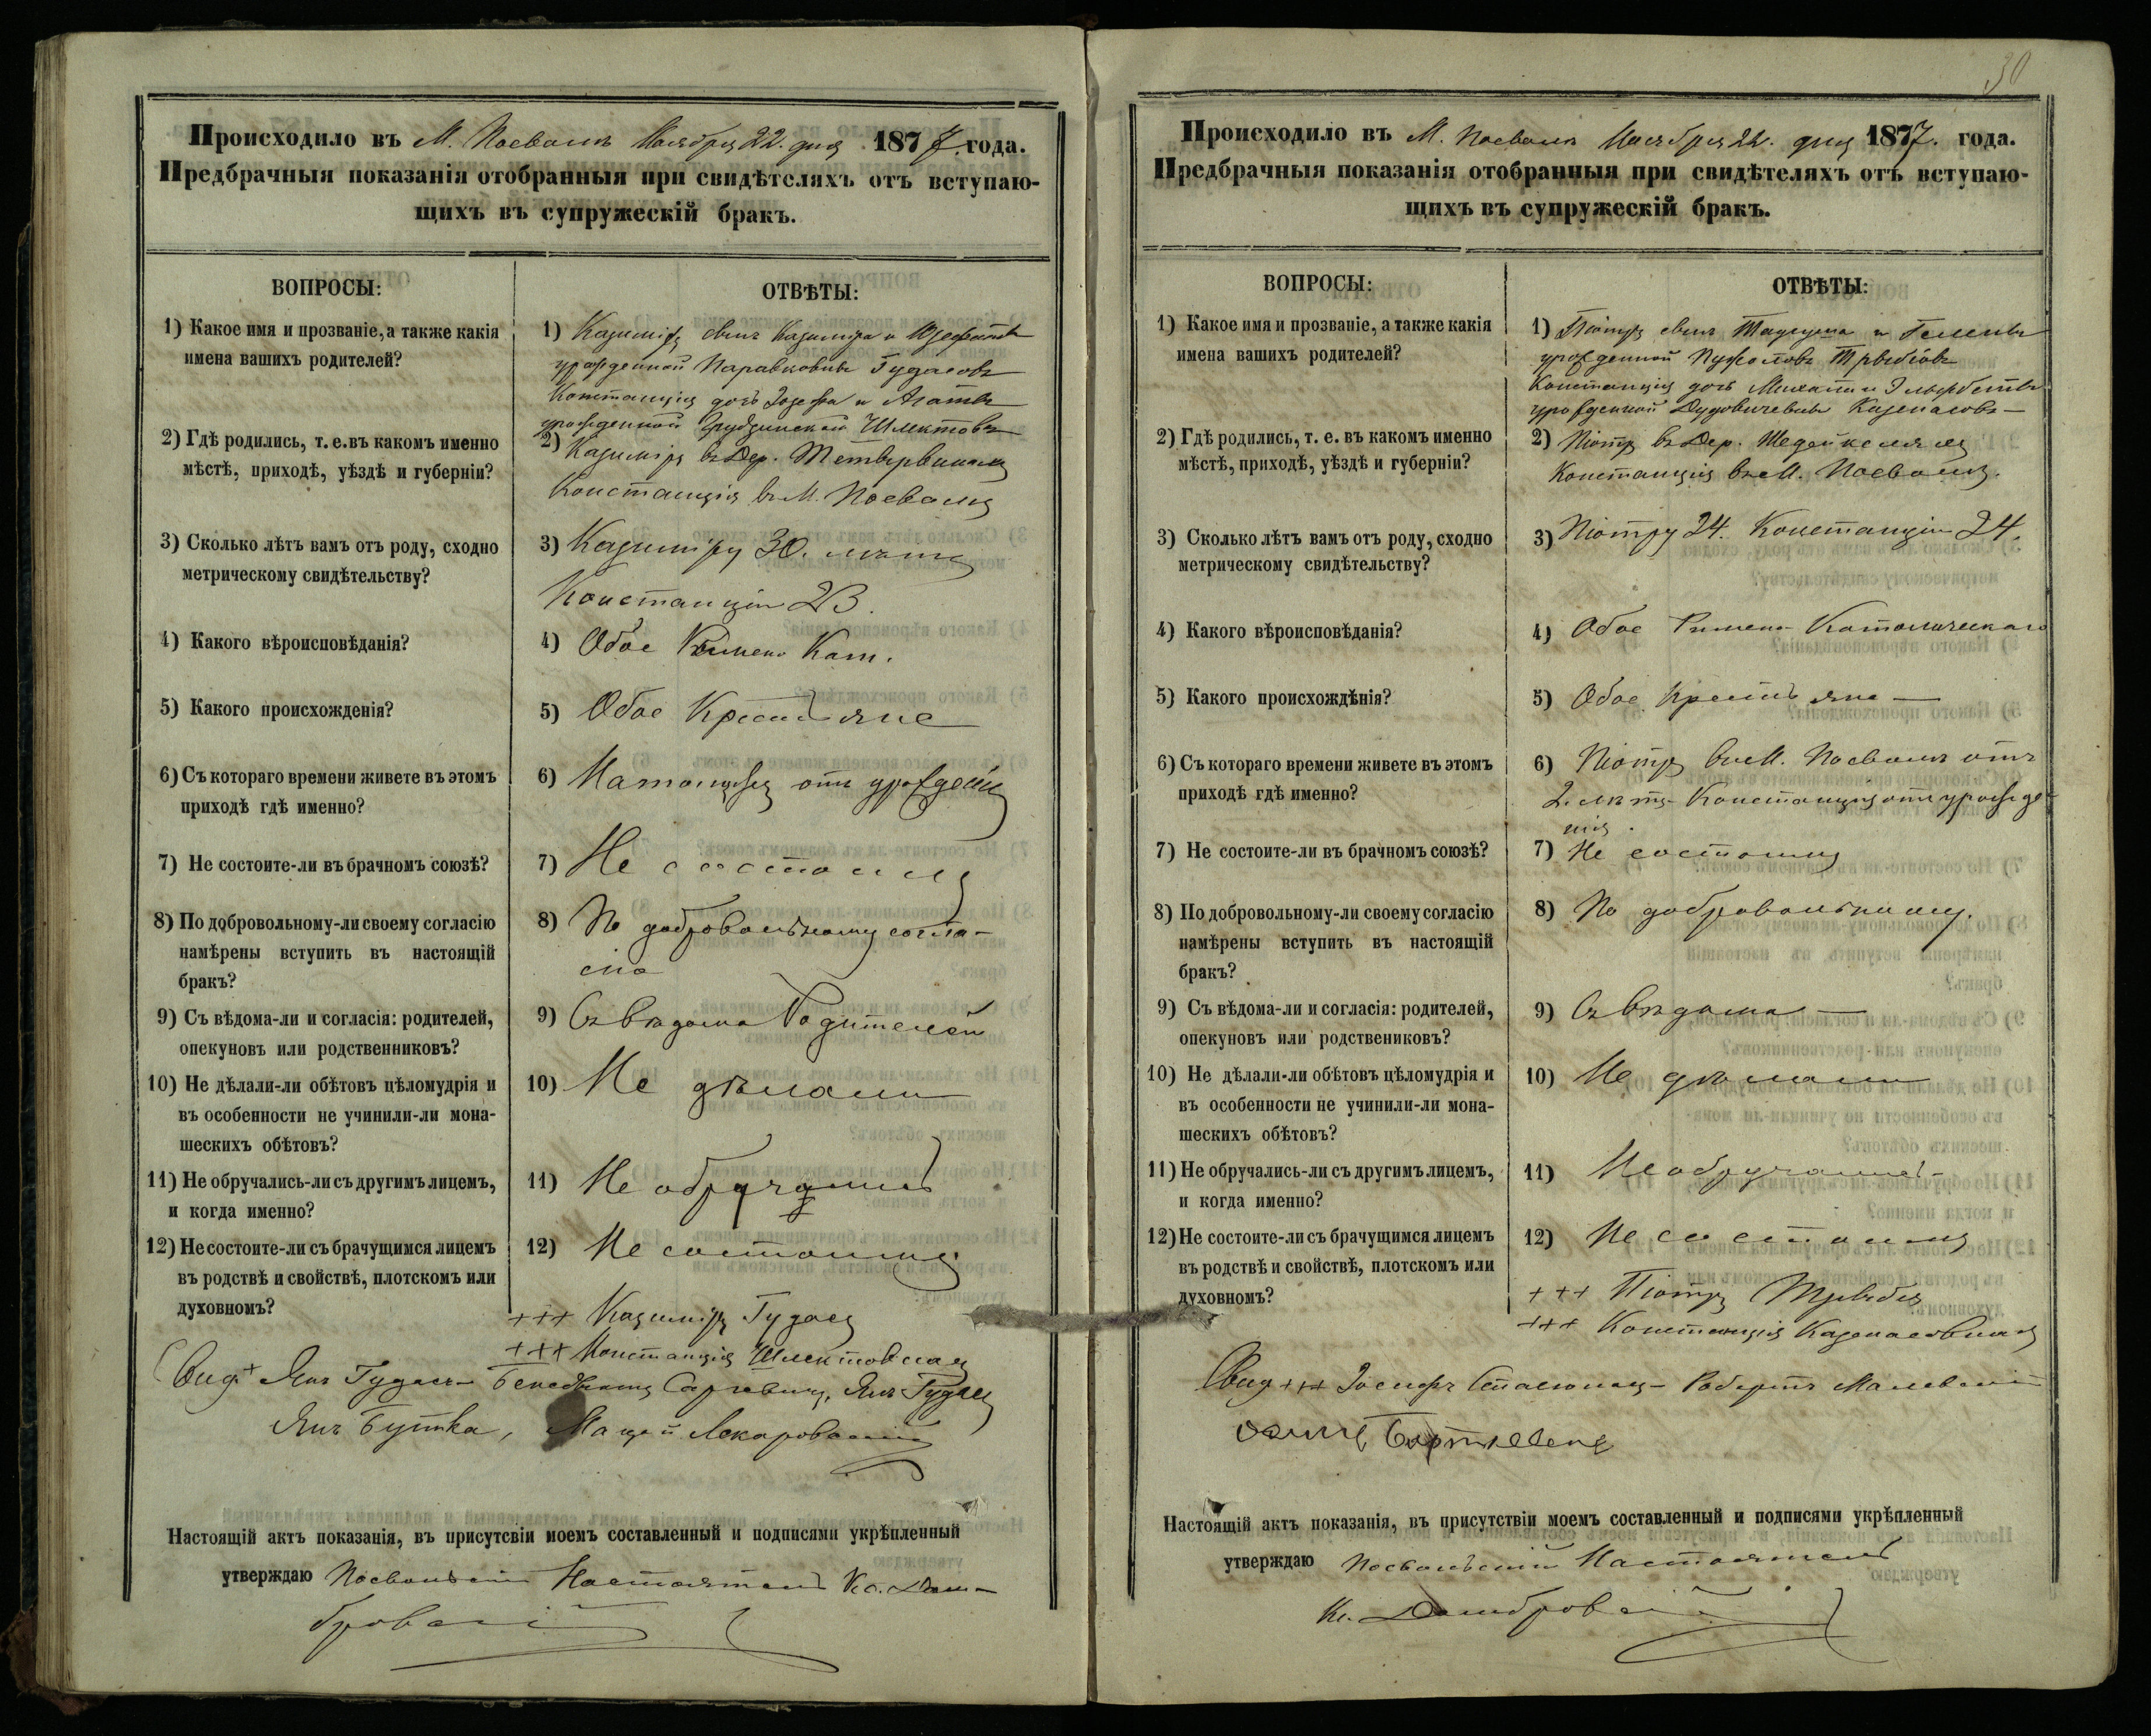 Происходило въ М. Посволь Ноября 22. дня 1877. года.
Предбрачныя показанія отобранныя при свидѣтеляхъ отъ вступаю-
щихъ въ супружескій бракъ.
ВОПРОСЫ:
ОТВѢТЫ:
1) Какое имя и прозваніе, а также какія
имена вашихъ родителей?
1) Казиміръ сынъ Казиміра и
урожденной Гудасовъ
Констанція дочь Іозефа и Агаты
урожденной Шлектовъ
2) Гдѣ родились, т. е. въ какомъ именно
мѣстѣ, приходѣ, уѣздѣ и губерніи?
2) Казиміръ въ Дер.
Констанція въ М. Посволь
3) Сколько лѣтъ вамъ отъ роду, сходно
метрическому свидѣтельству?
3) Казиміру 30. лѣтъ
Констанціи 23.
4) Какого вѣроисповѣданія?
4) Обое Римско Кат.
5) Какого происхожденія?
5) Обое Крестьяне
6) Съ котораго времени живете въ этомъ
приходѣ гдѣ именно?
6) отъ
7) Не состоите-ли въ брачномъ союзѣ?
7) Не состоимъ
8) По добровольному-ли своему согласію
намѣрены вступить въ настоящій
бракъ?
8) По добровольному согла-
сію
9) Съ вѣдома-ли и согласія: родителей,
опекуновъ или родственниковъ?
9) Съ вѣдома Родителей
10) Не дѣлали-ли обѣтовъ цѣломудрія и
въ особенности не учинили-ли мона-
шескихъ обѣтовъ?
10) Не дѣлали
11) Не обручались-ли съ другимъ лицемъ,
и когда именно?
11) Не обручались
12) Не состоите-ли съ брачущимся лицемъ
въ родствѣ и свойствѣ, плотскомъ или
духовномъ?
12) Не состоимъ
+++ Казиміръ Гудасъ
+++ Констанція Шлектовна
Свид + Янъ Гудасъ Янъ Гудасъ
Янъ Бутка, Мацей
Настоящій актъ показанія, въ присутсвіи моемъ составленный и подписями укрѣпленный
утверждаю Посвольскій Настоятель Кс. Дом-
бровскій
30
Происходило въ М. Посволь Ноября 22. дня 1877. года.
Предбрачныя показанія отобранныя при свидѣтеляхъ отъ вступаю-
щихъ въ супружескій бракъ.
ВОПРОСЫ:
ОТВѢТЫ:
1) Какое имя и прозваніе, а также какія
имена вашихъ родителей?
1) Піотръ сынъ Тадеуша и Гелены
урожденной
Констанція дочь Михала и Эльжбеты
урожденной
2) Гдѣ родились, т. е. въ какомъ именно
мѣстѣ, приходѣ, уѣздѣ и губерніи?
2) Піотръ въ Дер.
Констанція въ М. Посволь.
3) Сколько лѣтъ вамъ отъ роду, сходно
метрическому свидѣтельству?
3) Піотру 24. Констанціи 24.
4) Какого вѣроисповѣданія?
4) Обое Римско Католическаго
5) Какого происхождѣнія?
5) Обое Крестьяне
6) Съ котораго времени живете въ этомъ
приходѣ гдѣ именно?
6) Піотръ въ М. Посволь отъ
2. лѣтъ Констанція отъ урожде-
нія.
7) Не состоите-ли въ брачномъ союзѣ?
7) Не состоимъ
8) По добровольному-ли своему согласію
намѣрены вступить въ настоящій
бракъ?
8) По добровольному.
9) Съ вѣдома-ли и согласія: родителей,
опекуновъ или родствениковъ?
9) Съ вѣдома
10) Не дѣлали-ли обѣтовъ цѣломудрія и
въ особенности не учинили-ли мона-
шескихъ обѣтовъ?
10) Не дѣлали
11) Не обручались-ли съ другимъ лицемъ,
и когда именно?
11) Не обручались
12) Не состоите-ли съ брачущимся лицемъ
въ родствѣ и свойствѣ, плотскомъ или
духовномъ?
12) Не состоимъ
+++ Піотръ
+++ Констанція
Свид +++ Іосифъ Робертъ
Настоящій актъ показанія, въ присутствіи моемъ составленный и подписями укрѣпленный
утверждаю Посвольскій Настоятель
Кс. Домбровскій